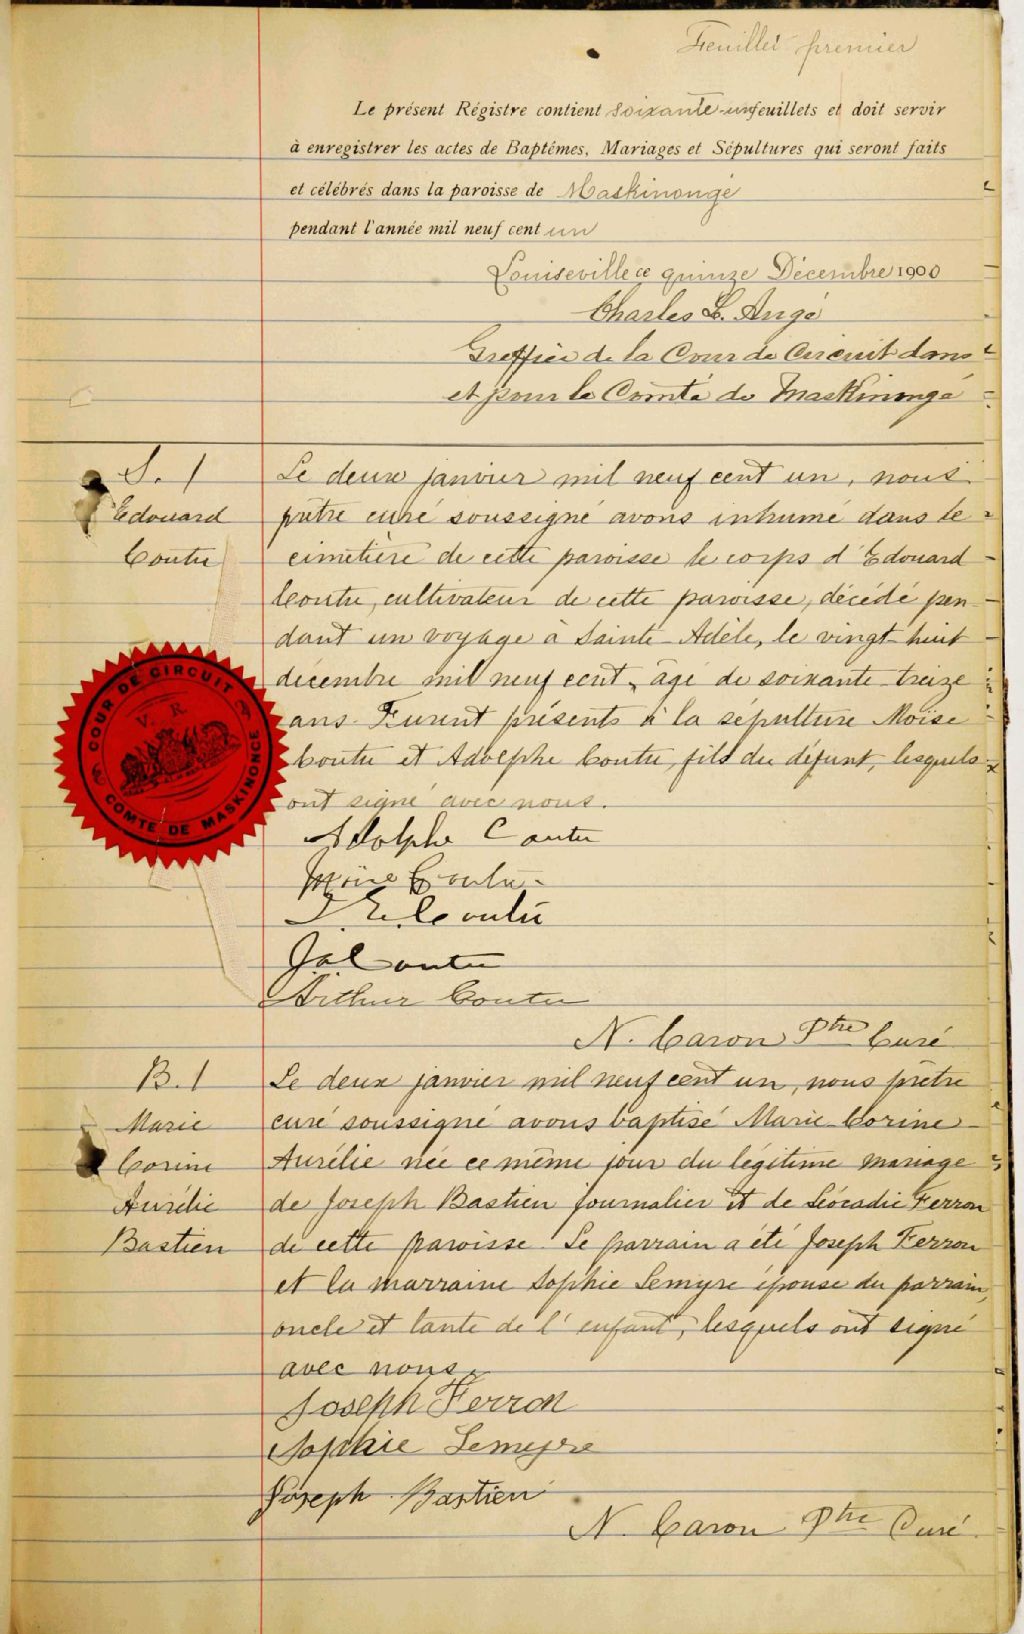 Feuillet premier
Le présent Régistre contient soixante-un feuillets et doit servir
à enregistrer les actes de Baptêmes, Mariages et Sépultures qui seront faits
et célébrés dans la paroisse de Maskinongé
pendant l'année mil neuf cent un
Louiseville ce quinze Décembre 1900
Charles L. Augé
Greffier de la Cour de Circuit dans
et pour le Comté de Maskinongé
S. 1
Edouard
Coutu
Le deux janvier mil neuf cent un, nous
prêtre curé soussigné avons inhumé dans le
cimetière de cette paroisse le corps d'Edouard
Coutu, cultivateur de cette paroisse, décédé pen
dant un voyage à Sainte-Adèle, le vingt-huit
décembre mil neuf cent, âgé de soixante-treize
ans. Furent présents à la sépulture Moïse
Coutu et Adolphe Coutu, fils du défunt, lesquels
ont signé avec nous.
COUR DE CIRCUIT
V. R.
COMTE DE MASKINONGE
Adolphe Coutu
Moïse Coutu
J. E. Coutu
J. A. Coutu
Arthur Coutu
N. Caron Ptre Curé
B. 1
Marie
Corine
Aurélie
Bastien
Le deux janvier mil neuf cent un, nous prêtre
curé soussigné avons baptisé Marie-Corine-
Aurélie née ce même jour du légitime mariage
de Joseph Bastien journalier et de Léocadie Ferron
de cette paroisse. Le parrain a été Joseph Ferron
et la marraine Sophie Lemyre épouse du parrain,
oncle et tante de l'enfant, lesquels ont signé
avec nous.
Joseph Ferron
Sophie Lemyre
Joseph Bastien
N. Caron Ptre Curé.